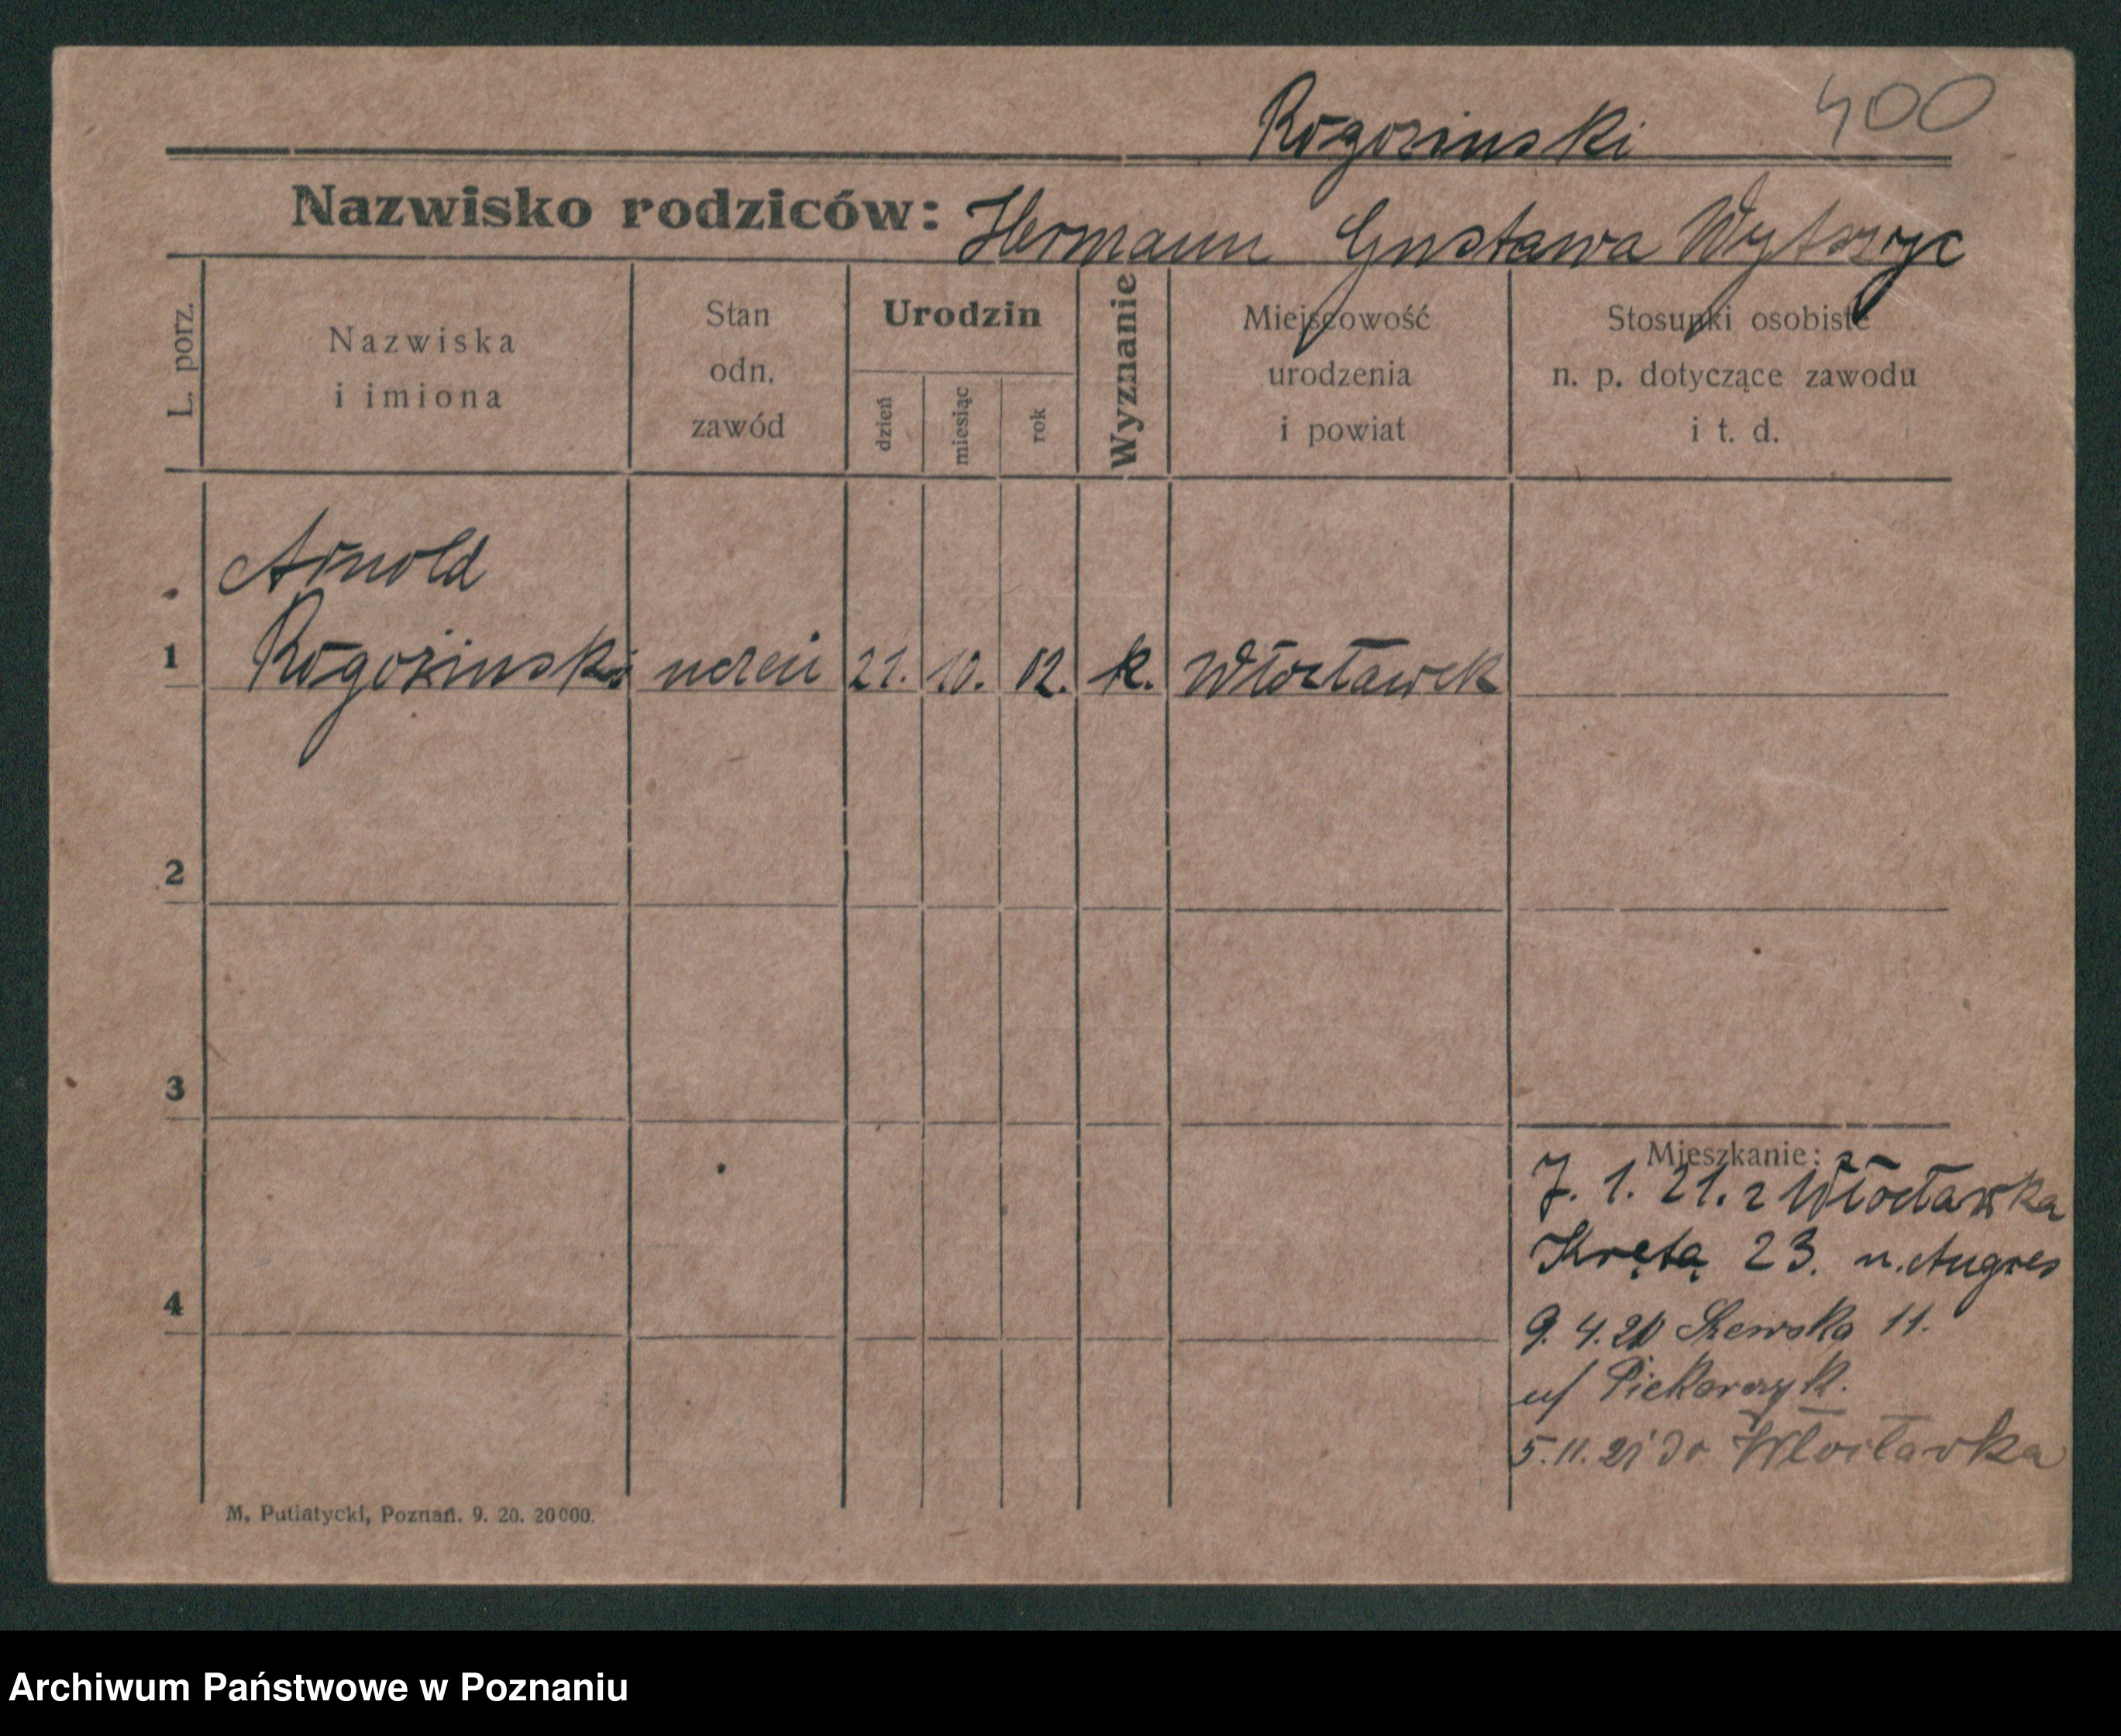 Rogozinski 400
Nazwisko rodziców: Hermann Gustawa
L. porz.
Nazwiska
i imiona
Stan
odn.
zawód
Urodzin
dzień
miesiąc
rok
Wyznanie
Miejscowość
urodzenia
i powiat
Stosunki osobiste
n. p. dotyczące zawodu
i t. d.
Arnold
1 Rogoziński uczeń 21. 10. 02. k. Włocławek
2
3
Mieszkanie:
7. 1. 21. z Włocławka
Kręta 23. u.
4
9. 4. Szewska 11.
u/ Piekarczyk.
5. 11. 21 do Włocławka
M. Putiatycki, Poznań. 9. 20. 20000.
Archiwum Państwowe w Poznaniu